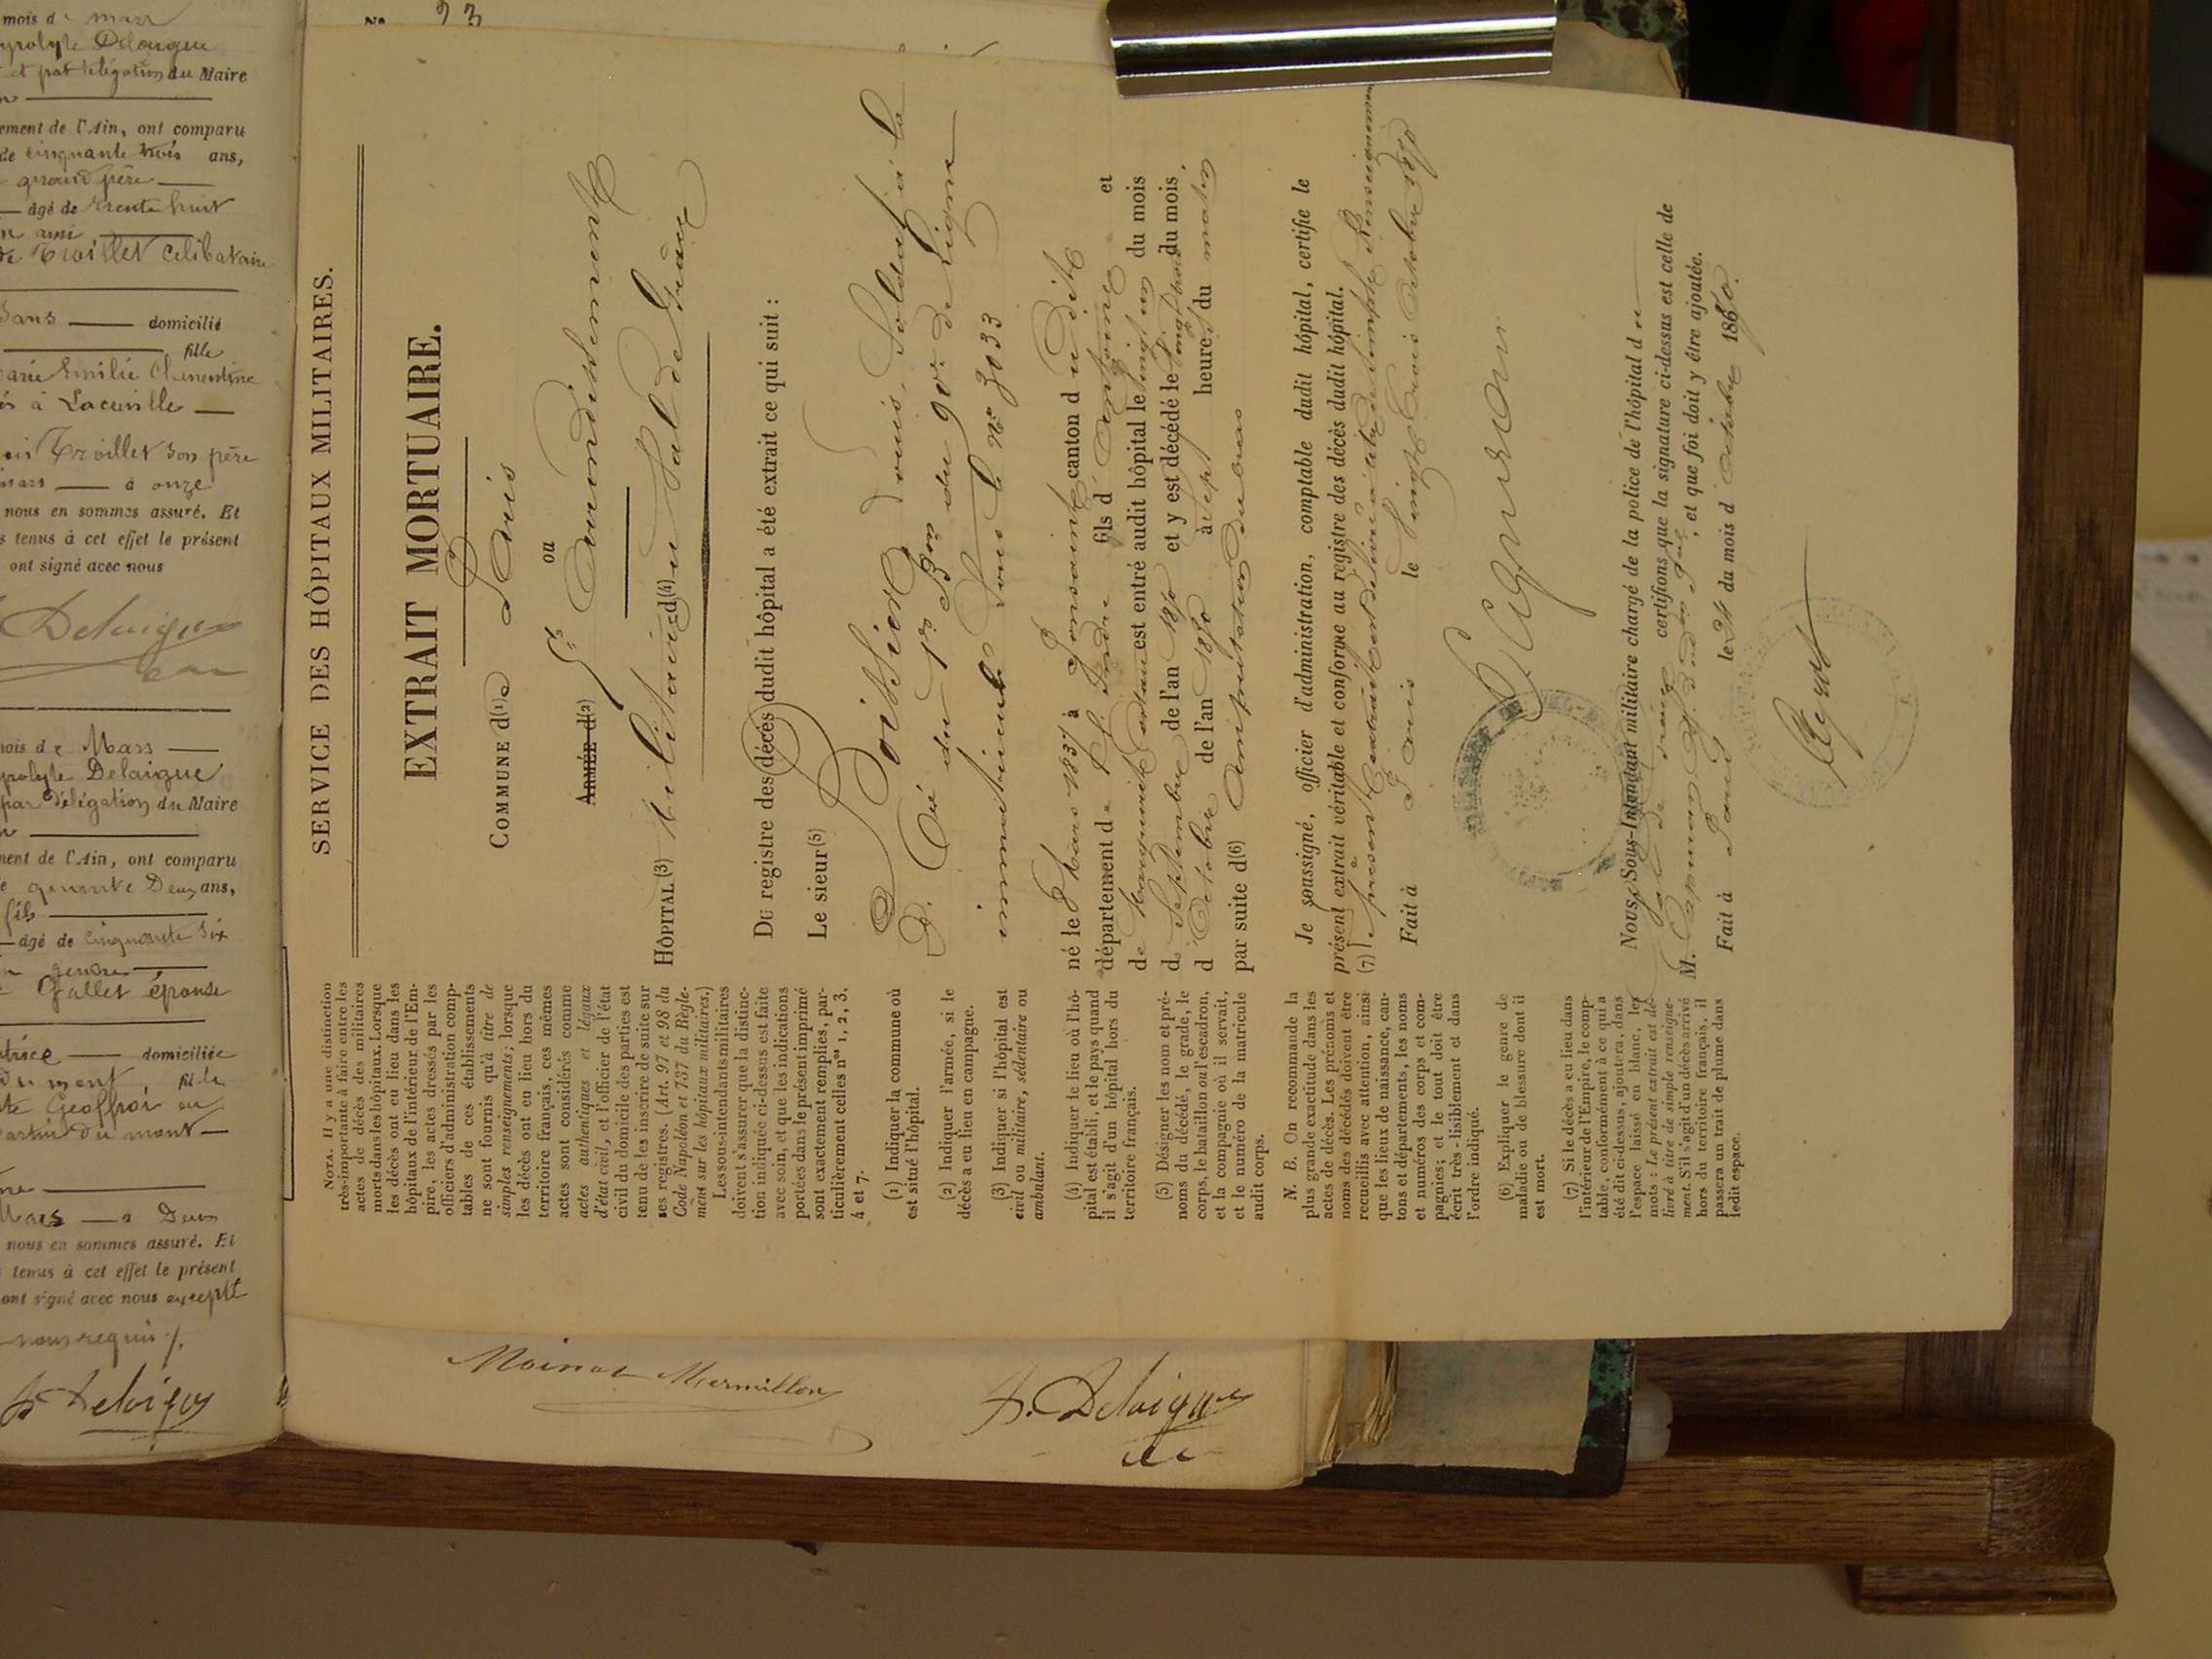 mois de mars
et par délégation du Maire
ement de l'Ain, ont comparu
de cinquante trois ans,
grand père
âgé de trente huit
n ami
de Troillet Celibataire
Sans domicilié
fille
arie Emilie Clementine
à Laceville
Troillet son père
mars à onze
nous en sommes assuré. Et
s tenus à cet effet le présent
ont signé avec nous
Delaigue
mois de Mars
Delaigue
par délégation du Maire
ment de l'Ain, ont comparu
quarante Deux ans,
fils
âgé de cinquante six
n gendre
Gallet épouse
domiciliée
du mont, fille
te Geoffroi
du mont
Mars à Deux
nous en sommes assuré. Et
s tenus à cet effet le présent
ont signé avec nous excepté
nous requis
Delaigue
No 23
SERVICE DES HÔPITAUX MILITAIRES.
EXTRAIT MORTUAIRE.
COMMUNE d(1)e Paris
ou
ARMÉE d(2) Arrondissement
HÔPITAL (3) Militaire d(4)u Val de Grâce
Du registre des décès dudit hôpital a été extrait ce qui suit :
Le sieur (5)
Louis, Soldat à la
du 1er Bon du 90e de Ligne
immatriculé Sous le No 3033
né le 8 Mars 1837 à canton d u dit
département de fils d' Antoine et
de Marguerite est entré audit hôpital le vingt un du mois
de Septembre de l'an 1870 et y est décédé le vingt trois du mois
d' Octobre de l'an 1870 à sept heures du matin
par suite d(6) Amputation du bras
Je soussigné, officier d'administration, comptable dudit hôpital, certifie le
présent extrait véritable et conforme au registre des décès dudit hôpital.
(7) Le présent Extrait est délivré à titre de simple Renseignement
Fait à Paris le Vingt Trois Octobre 1870
Nous, Sous-Intendant militaire chargé de la police de l'hôpital du
Val de Grâce certifions que la signature ci-dessus est celle de
M. , et que foi doit y être ajoutée.
Fait à Paris le 24 du mois d' Octobre 1870.
NOTA. Il y a une distinction
très-importante à faire entre les
actes de décès des militaires
morts dans les hôpitaux. Lorsque
les décès ont eu lieu dans les
hôpitaux de l'intérieur de l'Em-
pire, les actes dressés par les
officiers d'administration comp-
tables de ces établissements
ne sont fournis qu'à titre de
simples renseignements; lorsque
les décès ont eu lieu hors du
territoire français, ces mêmes
actes sont considérés comme
actes authentiques et légaux
d'état civil, et l'officier de l'état
civil du domicile des parties est
tenu de les inscrire de suite sur
ses registres. (Art. 97 et 98 du
Code Napoléon et 737 du Règle-
ment sur les hôpitaux militaires.)
Les sous-intendants militaires
doivent s'assurer que la distinc-
tion indiquée ci-dessus est faite
avec soin, et que les indications
portées dans le présent imprimé
sont exactement remplies, par-
ticulièrement celles nos 1, 2, 3,
4 et 7.
(1) Indiquer la commune où
est situé l'hôpital.
(2) Indiquer l'armée, si le
décès a eu lieu en campagne.
(3) Indiquer si l'hôpital est
civil ou militaire, sédentaire ou
ambulant.
(4) Indiquer le lieu où l'hô-
pital est établi, et le pays quand
il s'agit d'un hôpital hors du
territoire français.
(5) Désigner les nom et pré-
noms du décédé, le grade, le
corps, le bataillon ou l'escadron,
et la compagnie où il servait,
et le numéro de la matricule
audit corps.
N. B. On recommande la
plus grande exactitude dans les
actes de décès. Les prénoms et
noms des décédés doivent être
recueillis avec attention, ainsi
que les lieux de naissance, can-
tons et départements, les noms
et numéros des corps et com-
pagnies; et le tout doit être
écrit très-lisiblement et dans
l'ordre indiqué.
(6) Expliquer le genre de
maladie ou de blessure dont il
est mort.
(7) Si le décès a eu lieu dans
l'intérieur de l'Empire, le comp-
table, conformément à ce qui a
été dit ci-dessus, ajoutera, dans
l'espace laissé en blanc, les
mots : Le présent extrait est dé-
livré à titre de simple renseigne-
ment. S'il s'agit d'un décès arrivé
hors du territoire français, il
passera un trait de plume dans
ledit espace.
Moinat Mermillon
Delaigue